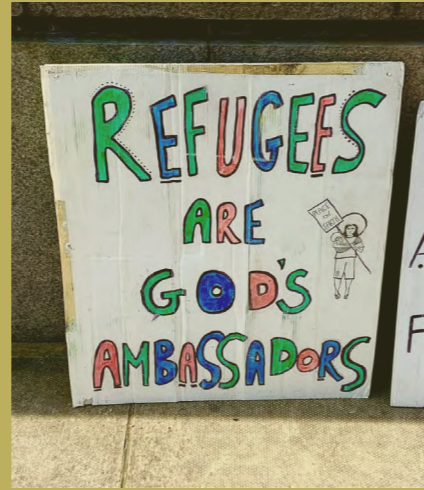 REFUGEES
ARE
GOD'S
AMBASSADORS
PEACE
ON
EARTH